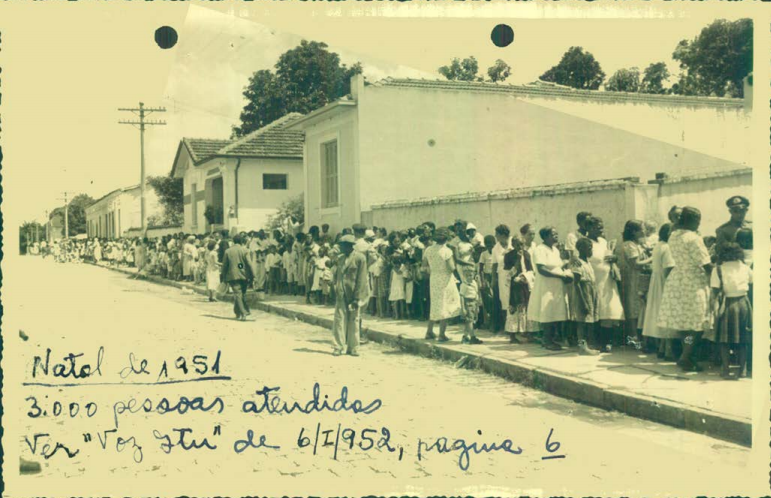 Natal de 1951
3.000 pessoas atendidas
Ver "Voz Ytu" de 6/I/1952, pagina 6